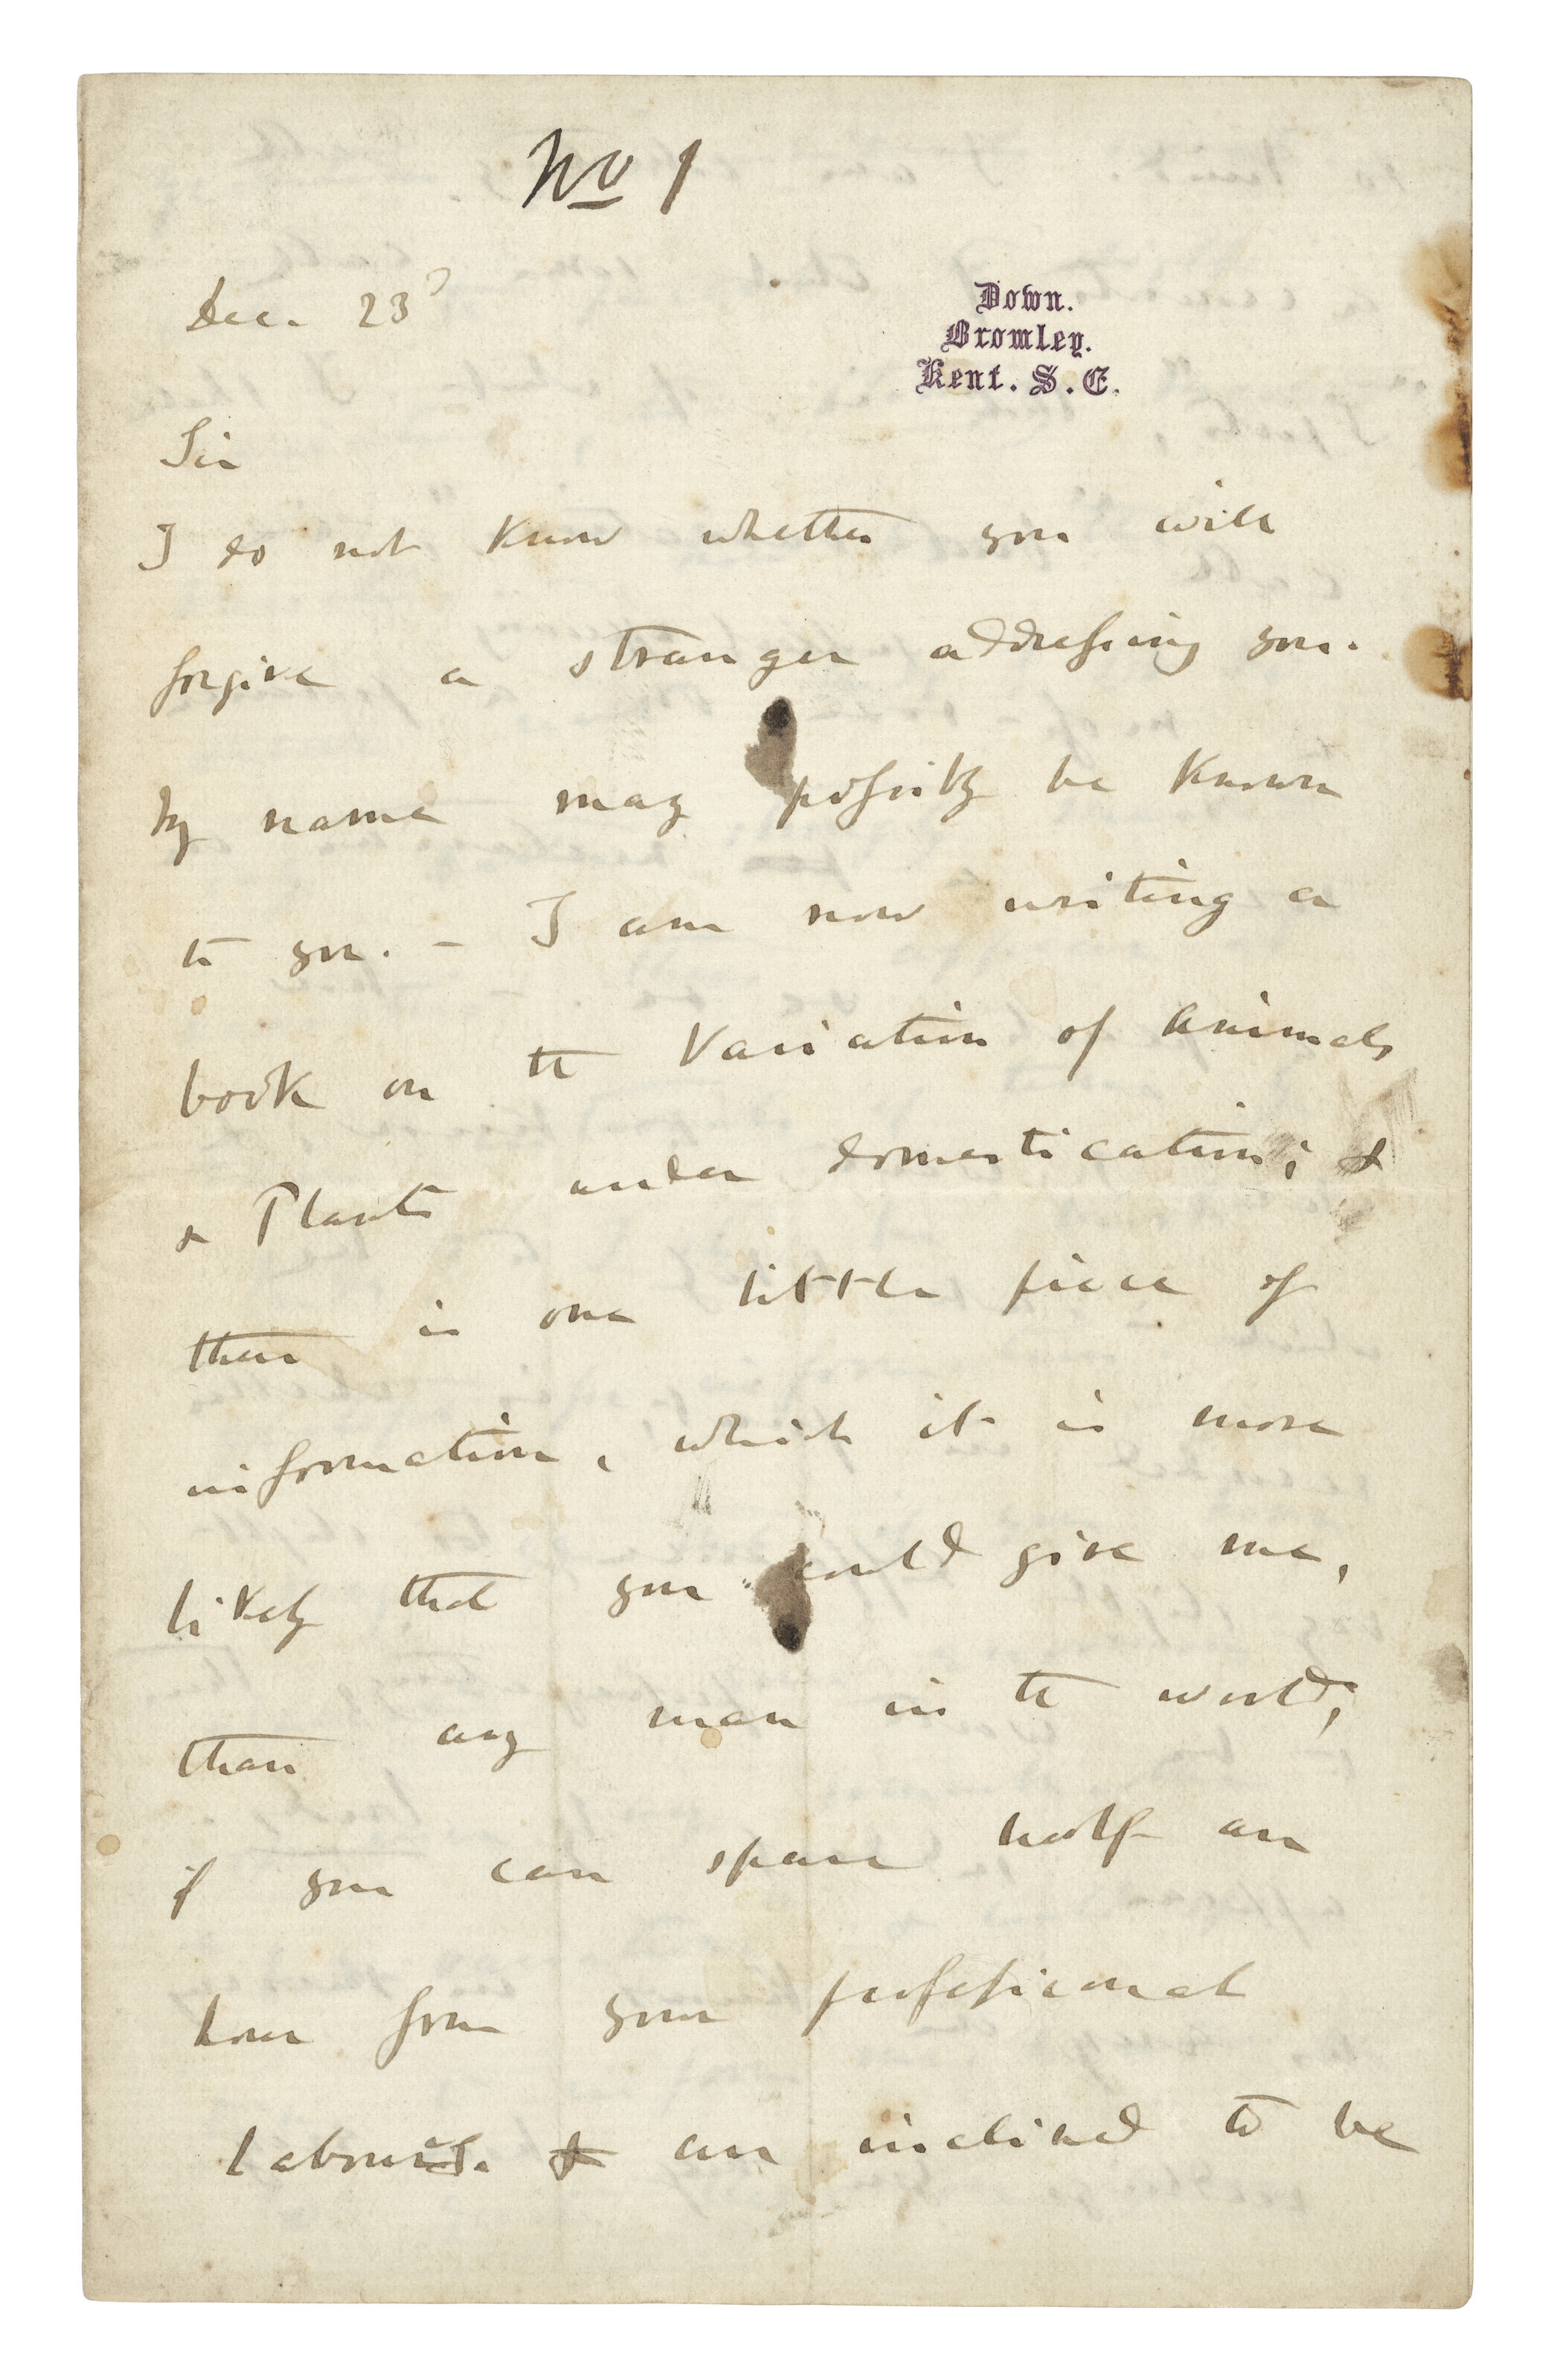 No 1
Dec. 23d
Down.
Bromley.
Kent. S.E.
Sir
I do not know whether you will
forgive a stranger addressing you.
My name may possibly be known
to you. — I am now writing a
book on the Variation of Animals
& Plants under domestication; &
there is one little piece of
information, which it is more
likely that you could give me,
than any man in the world,
if you can spare half an
hour from your professional
labours. & are inclined to be